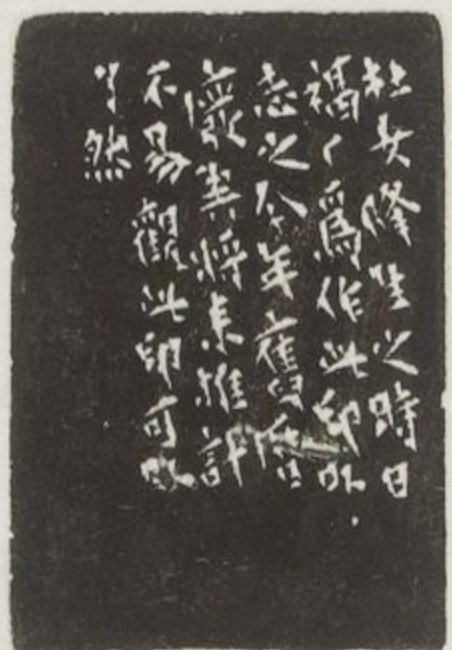 女降生之時日
爲作此印以
志之今年舊曆
廢棄將來推計
不易觀此印可以
了然